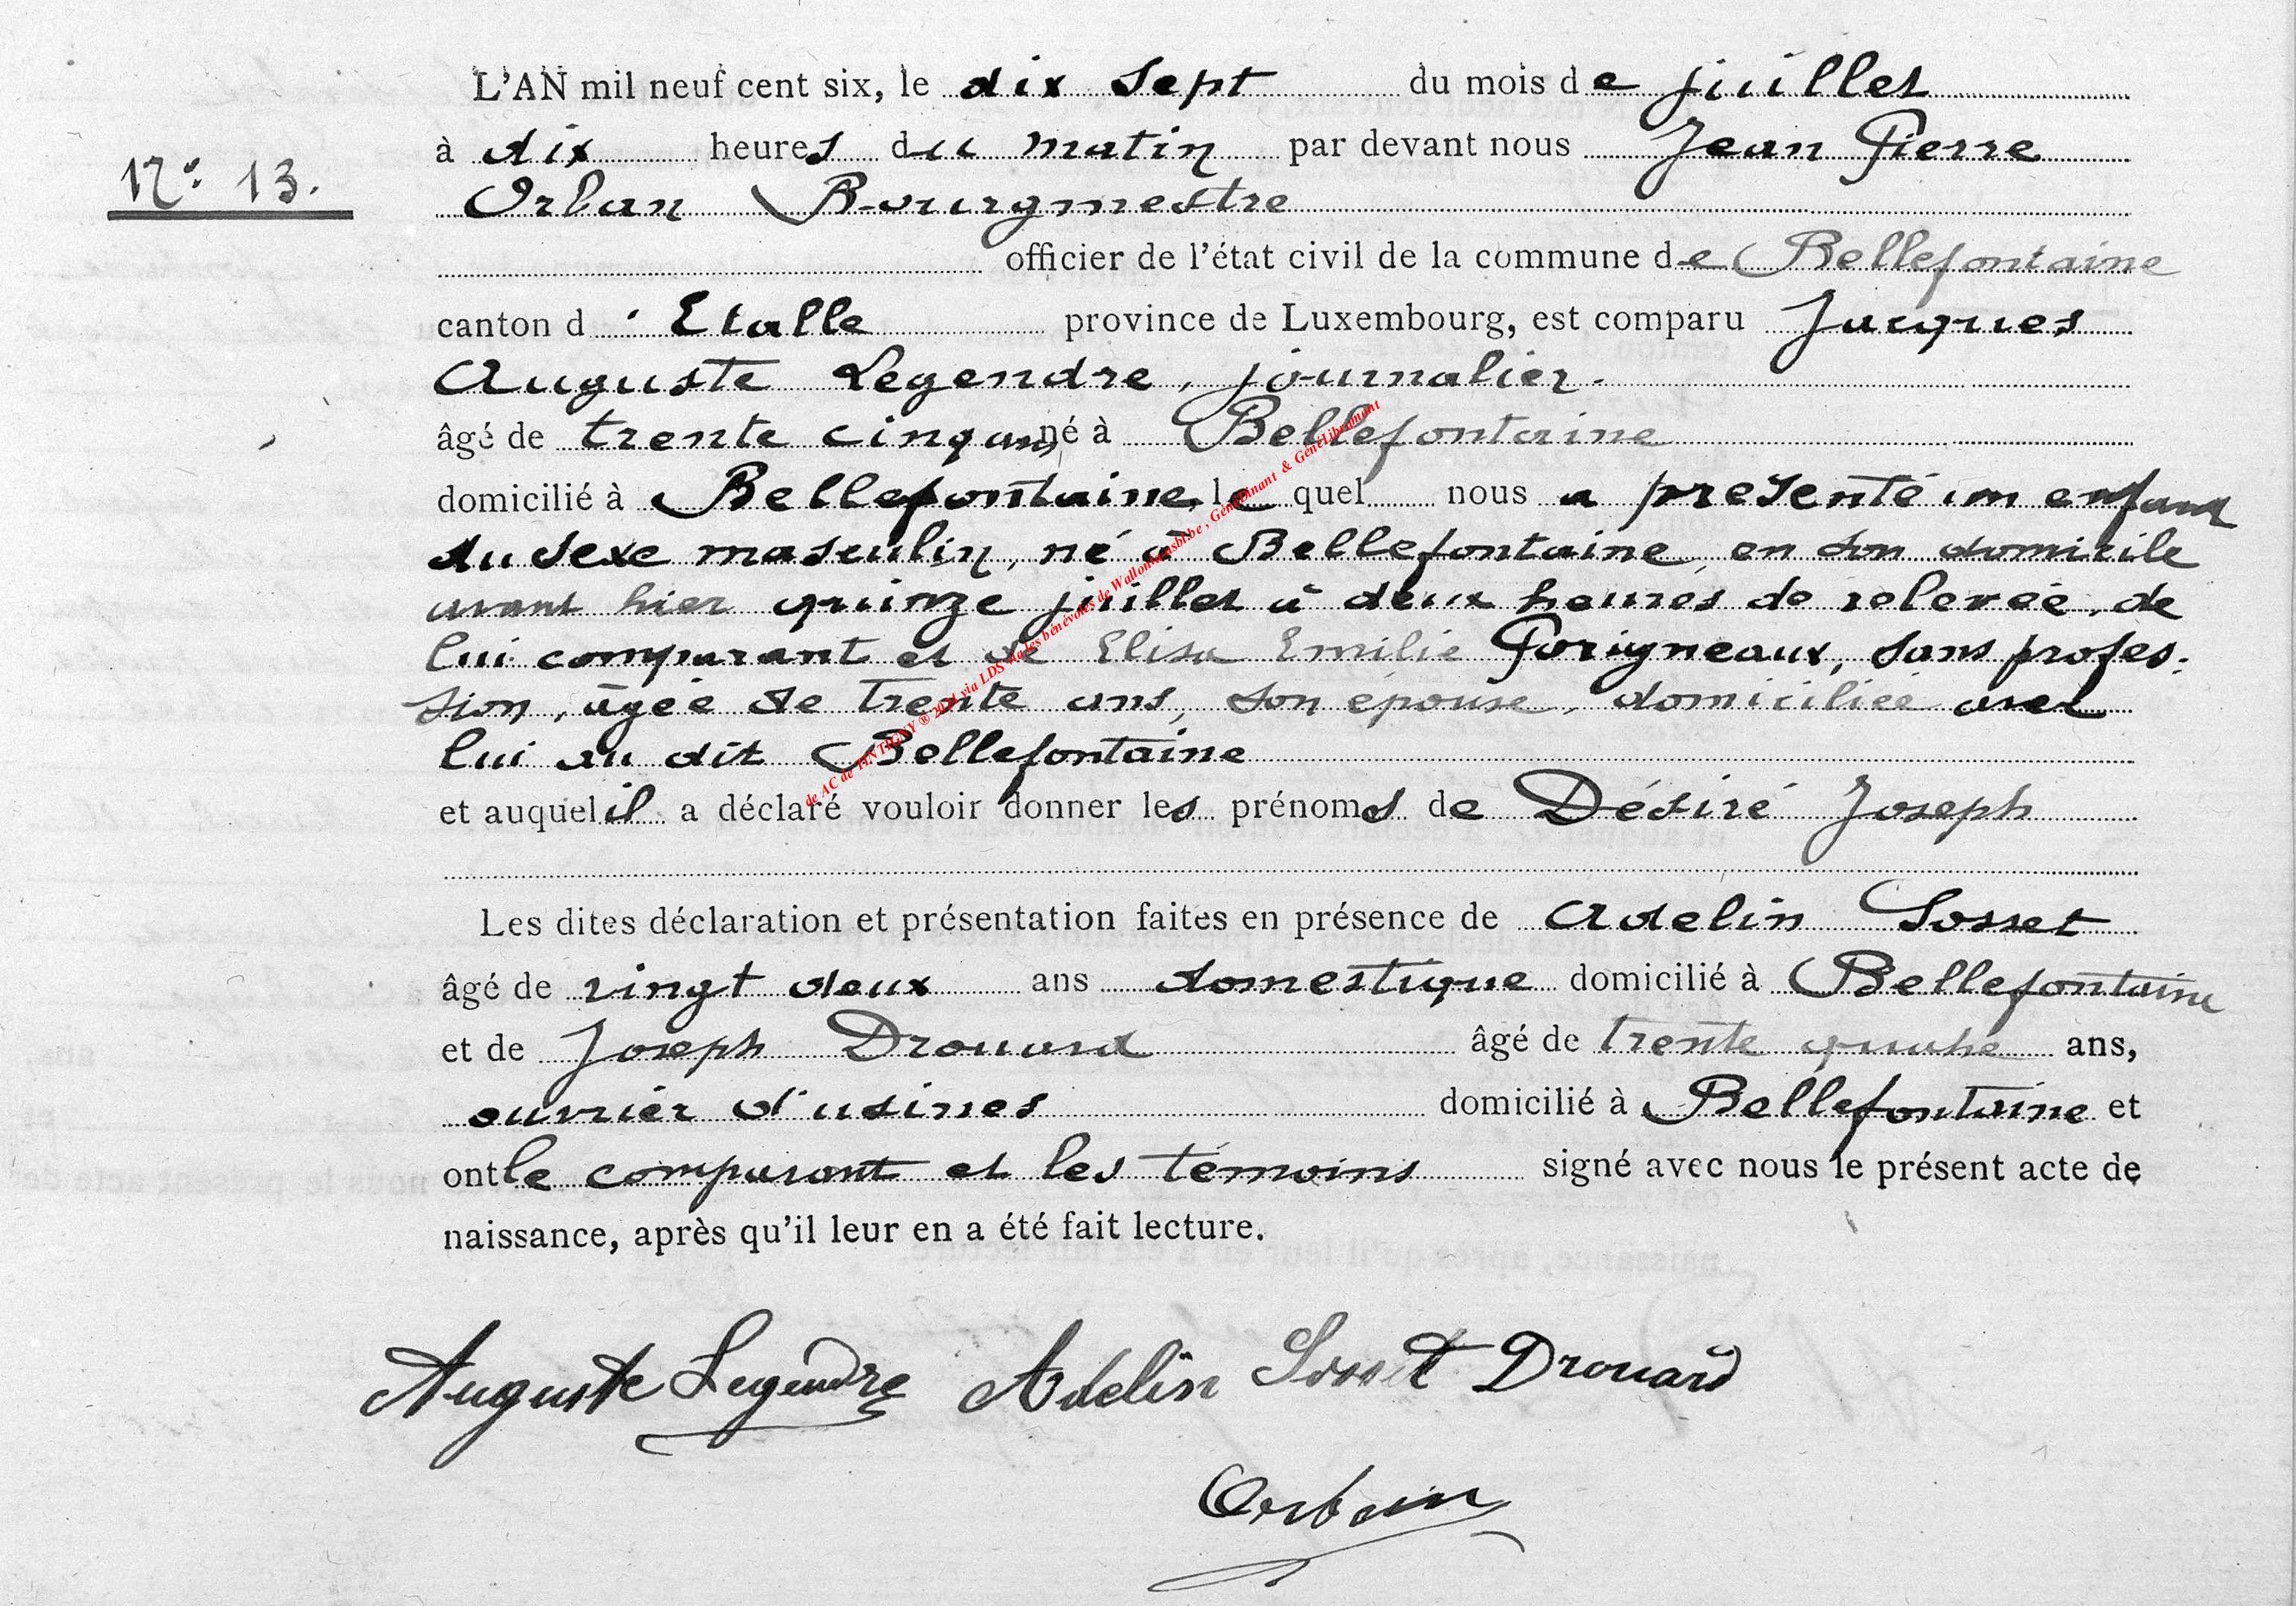 L'AN mil neuf cent six, le dix sept du mois de juillet
à dix heures du matin par devant nous Jean Pierre
N° 13.
Orban Bourgmestre
officier de l'état civil de la commune de Bellefontaine
canton d'Etalle province de Luxembourg, est comparu Jacques
Auguste Legendre, journalier.
âgé de trente cinq ans, né à Bellefontaine
domicilié à Bellefontaine, lequel nous a présenté un enfant
du sexe masculin, né à Bellefontaine, en son domicile
avant hier quinze juillet à deux heures de relevée, de
lui comparant et de Elisa Emilie Porigneaux, sans profes-
sion, âgée de trente ans, son épouse, domiciliée avec
lui au dit Bellefontaine
et auquel il a déclaré vouloir donner les prénoms de Désiré Joseph
Les dites déclaration et présentation faites en présence de Adelin Sosset
âgé de vingt deux ans domestique domicilié à Bellefontaine
et de Joseph Drouard âgé de trente quatre ans,
ouvrier d'usines domicilié à Bellefontaine et
ont le comparant et les témoins signé avec nous le présent acte de
naissance, après qu'il leur en a été fait lecture.
Auguste Legendre Adelin Sosset Drouard
Orban
de AC de TINTIGNY ® 2021 via LDS via les bénévoles de Wallonia asbl.be, GénéDinant & GénéLibramont